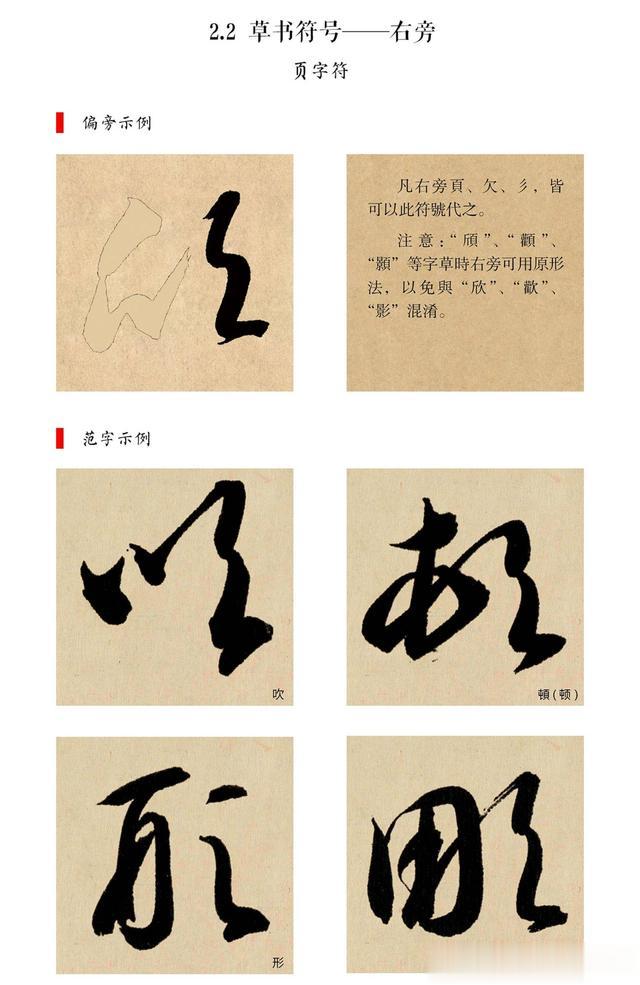 2.2 草书符号——右旁
页字符
偏旁示例
凡右旁頁、欠、彡，皆
可以此符號代之。
注意：“頎”、“顴”、
“顥”等字草時右旁可用原形
法，以免與“欣”、“歡”、
“影”混淆。
范字示例
吹
頓(顿)
形